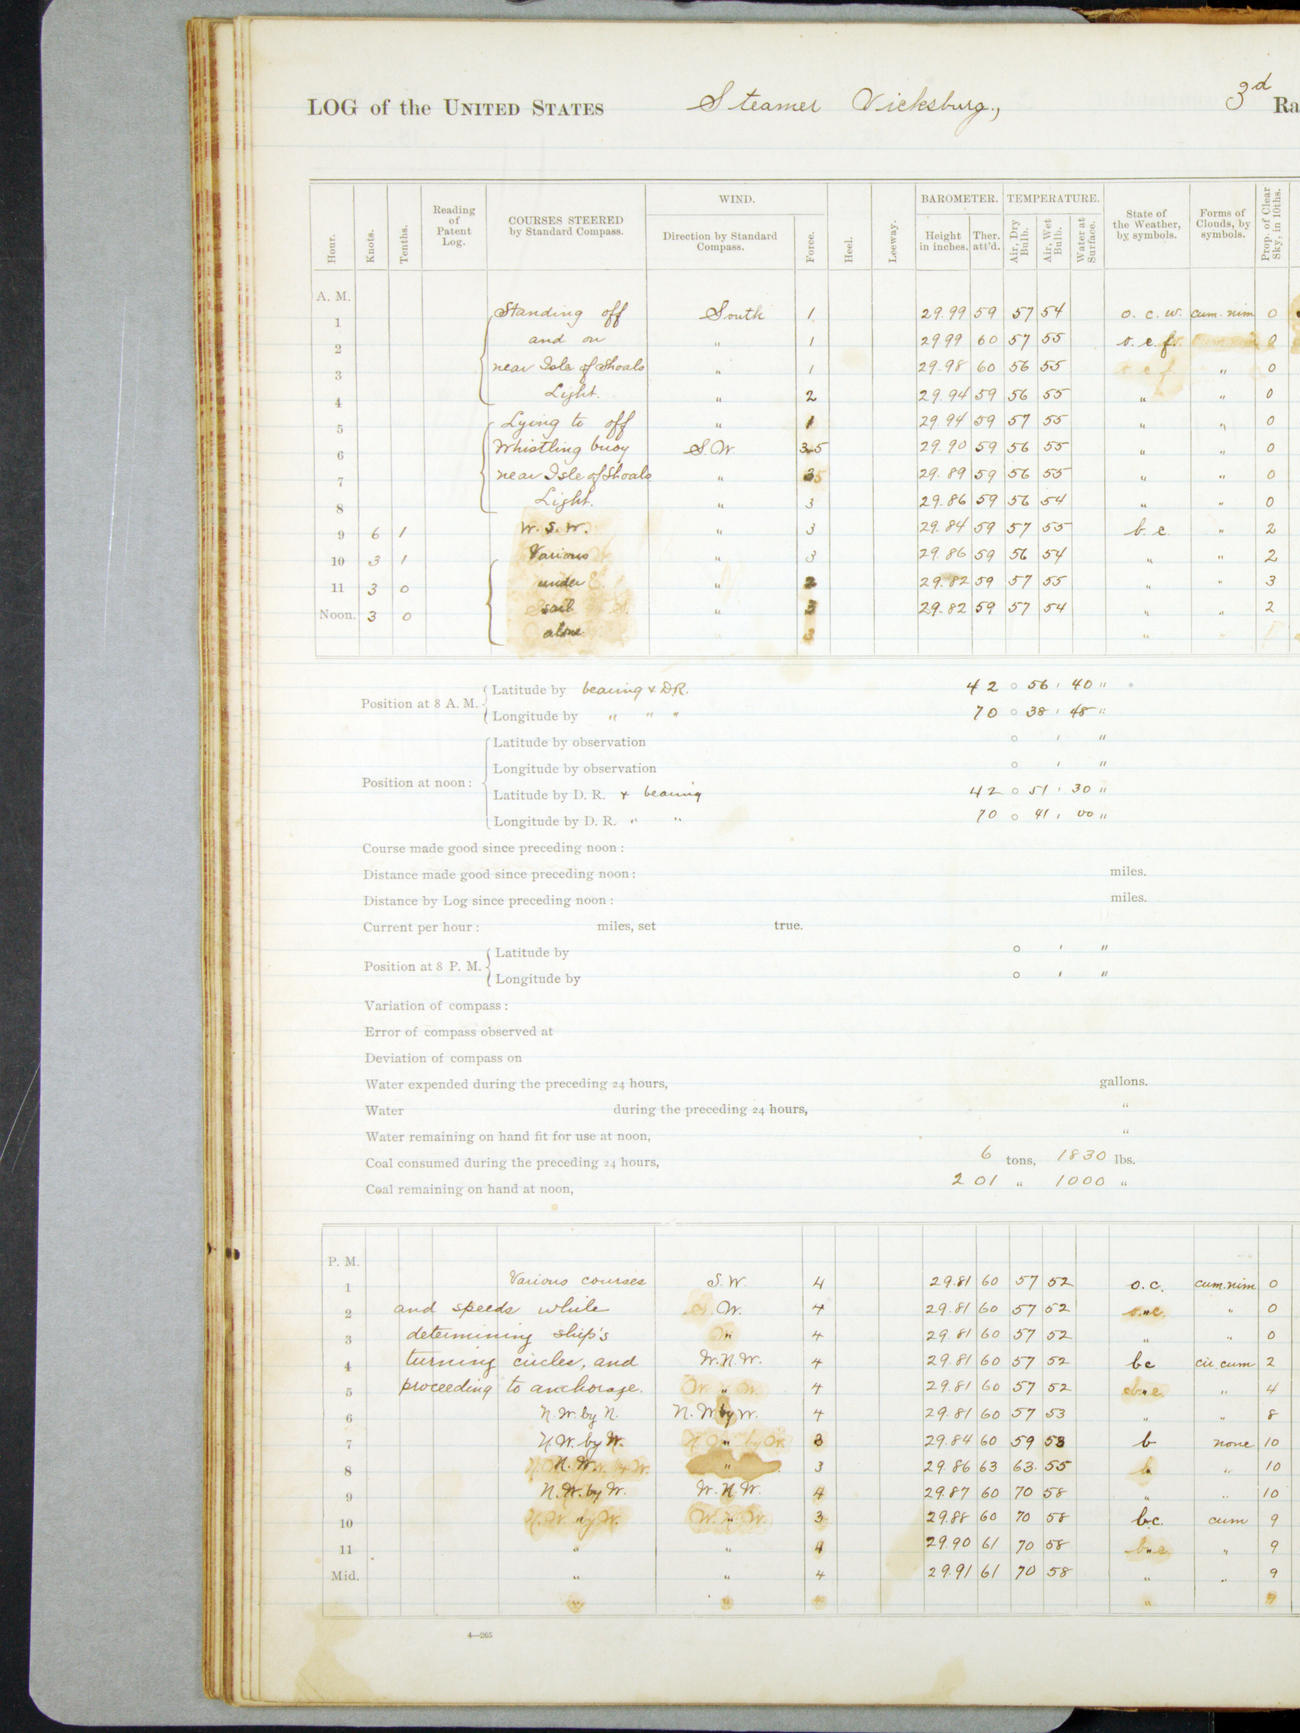 LOG of the UNITED STATES Steamer Vicksburg, 3d Ra
Hour. Knots. Tenths. Reading of Patent Log. COURSES STEERED by Standard Compass. WIND. Direction by Standard Compass. Force. Heel. Leeway. BAROMETER. Height in inches. Ther. att'd. TEMPERATURE. Air, Dry Bulb. Air, Wet Bulb. Water at Surface. State of the Weather, by symbols. Forms of Clouds, by symbols. Prop. of Clear Sky, in 10ths.
A. M.
1 Standing off South 1 29.99 59 57 54 o. c. w. cum. nim 0
2 and on " 1 29 99 60 57 55 o. c. f. 0
3 near Isle of Shoals " 1 29.98 60 56 55 " 0
4 Light. " 2 29.94 59 56 55 " " 0
5 Lying to off " 1 29.94 59 57 55 " " 0
6 Whistling buoy S.W. 3-5 29.90 59 56 55 " " 0
7 near Isle of Shoals " 3 29.89 59 56 55 " " 0
8 Light. " 3 29.86 59 56 54 " " 0
9 6 1 W. S. W. " 3 29.84 59 57 55 b. c. " 2
10 3 1 Various " 3 29.86 59 56 54 " " 2
11 3 0 under " 2 29.82 59 57 55 " " 3
Noon. 3 0 sail " 3 29.82 59 57 54 " " 2
alone " "
Position at 8 A. M. Latitude by bearing & D.R. 42 ° 56 ' 40 "
Longitude by " " " 70 ° 38 ' 48 "
Position at noon: Latitude by observation ° ' "
Longitude by observation ° ' "
Latitude by D. R. & bearing 42 ° 51 ' 30 "
Longitude by D. R. " " 70 ° 41 ' 00 "
Course made good since preceding noon:
Distance made good since preceding noon: miles.
Distance by Log since preceding noon: miles.
Current per hour: miles, set true.
Position at 8 P. M. Latitude by ° ' "
Longitude by ° ' "
Variation of compass:
Error of compass observed at
Deviation of compass on
Water expended during the preceding 24 hours, gallons.
Water during the preceding 24 hours, "
Water remaining on hand fit for use at noon, "
Coal consumed during the preceding 24 hours, 6 tons, 1830 lbs.
Coal remaining on hand at noon, 201 " 1000 "
P. M.
1 Various courses S.W. 4 29.81 60 57 52 o.c. cum.nim 0
2 and speeds while S.W. 4 29.81 60 57 52 " " 0
3 determining ship's " 4 29.81 60 57 52 " " 0
4 turning circles, and W.N.W. 4 29.81 60 57 52 bc cir cum 2
5 proceeding to anchorage. " 4 29.81 60 57 52 " " 4
6 N.W. by N. N.W. by W. 4 29.81 60 57 53 " " 8
7 N.W. by W. " 3 29.84 60 59 53 b none 10
8 N.W. " 3 29.86 63 63 55 " " 10
9 N.W. by W. W.N.W. 4 29.87 60 70 58 " " 10
10 " " 3 29.88 60 70 58 b.c. cum 9
11 " " 4 29.90 61 70 58 " " 9
Mid. " " 4 29.91 61 70 58 " " 9
" " "
4—265